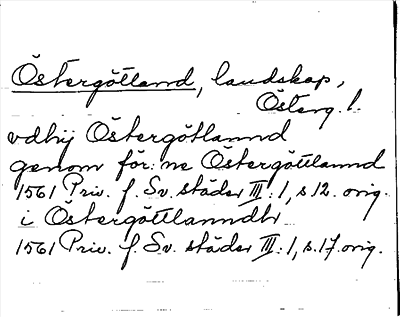 Östergötland, landskap,
Österg. l.
vdhij Östergötlannd
genom för:ne Östergöttlannd
1561 Priv. f. Sv. städer III:1, s 12. orig.
i Östergöttlanndh
1561 Priv. f. Sv. städer III:1, s. 17. orig.